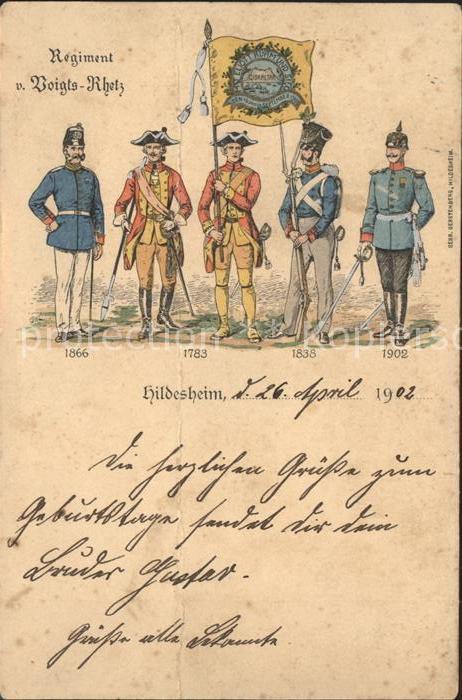 Regiment
v. Voigts-Rhetz
GIBRALTAR
GEBR. GERSTENBERG, HILDESHEIM.
protection kopiersc
1866 1783 1838 1902
Hildesheim, d. 26. April 1902
Die herzlichen Grüße zum
Geburtstage sendet dir dein
Bruder Gustav.
Grüße alle Bekannte.